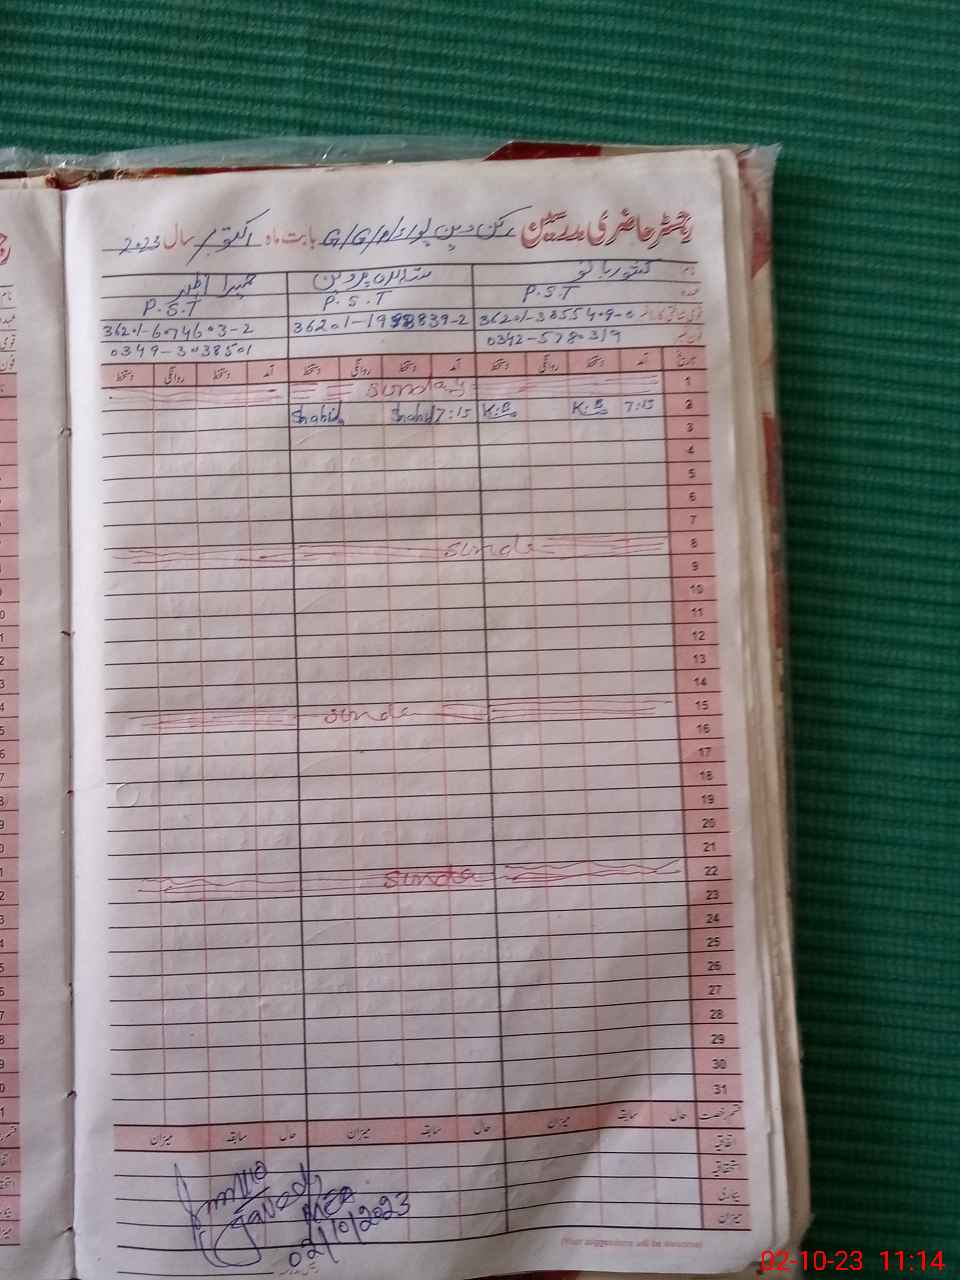 رجسٹر حاضری مدرسین رکن دین پور G/G/P/S بابت ماہ اکتوبر سال 2023
نام کشور بانو شاہدہ پروین حمیرا
عہدہ P.S.T P.S.T P.S.T
36201-1998839-2 36201-6074603-2
فون نمبر 0342-5780319 0349-3038501
تاریخ آمد دستخط روانگی دستخط آمد دستخط روانگی دستخط آمد دستخط روانگی دستخط
1 Sunday
2 7:15 K.B K.B 7:15 Shahid Shahid
3
4
5
6
7
8 sunda
9
10
11
12
13
14
15 sunda
16
17
18
19
20
21
22 sunda
23
24
25
26
27
28
29
30
31
قسم رخصت حال سابقہ میزان حال سابقہ میزان حال سابقہ میزان
اتفاقیہ
استحقاقیہ
بیماری
میزان
Javed
MEA
02/10/2023
(Your suggestions will be welcome)
02-10-23 11:14